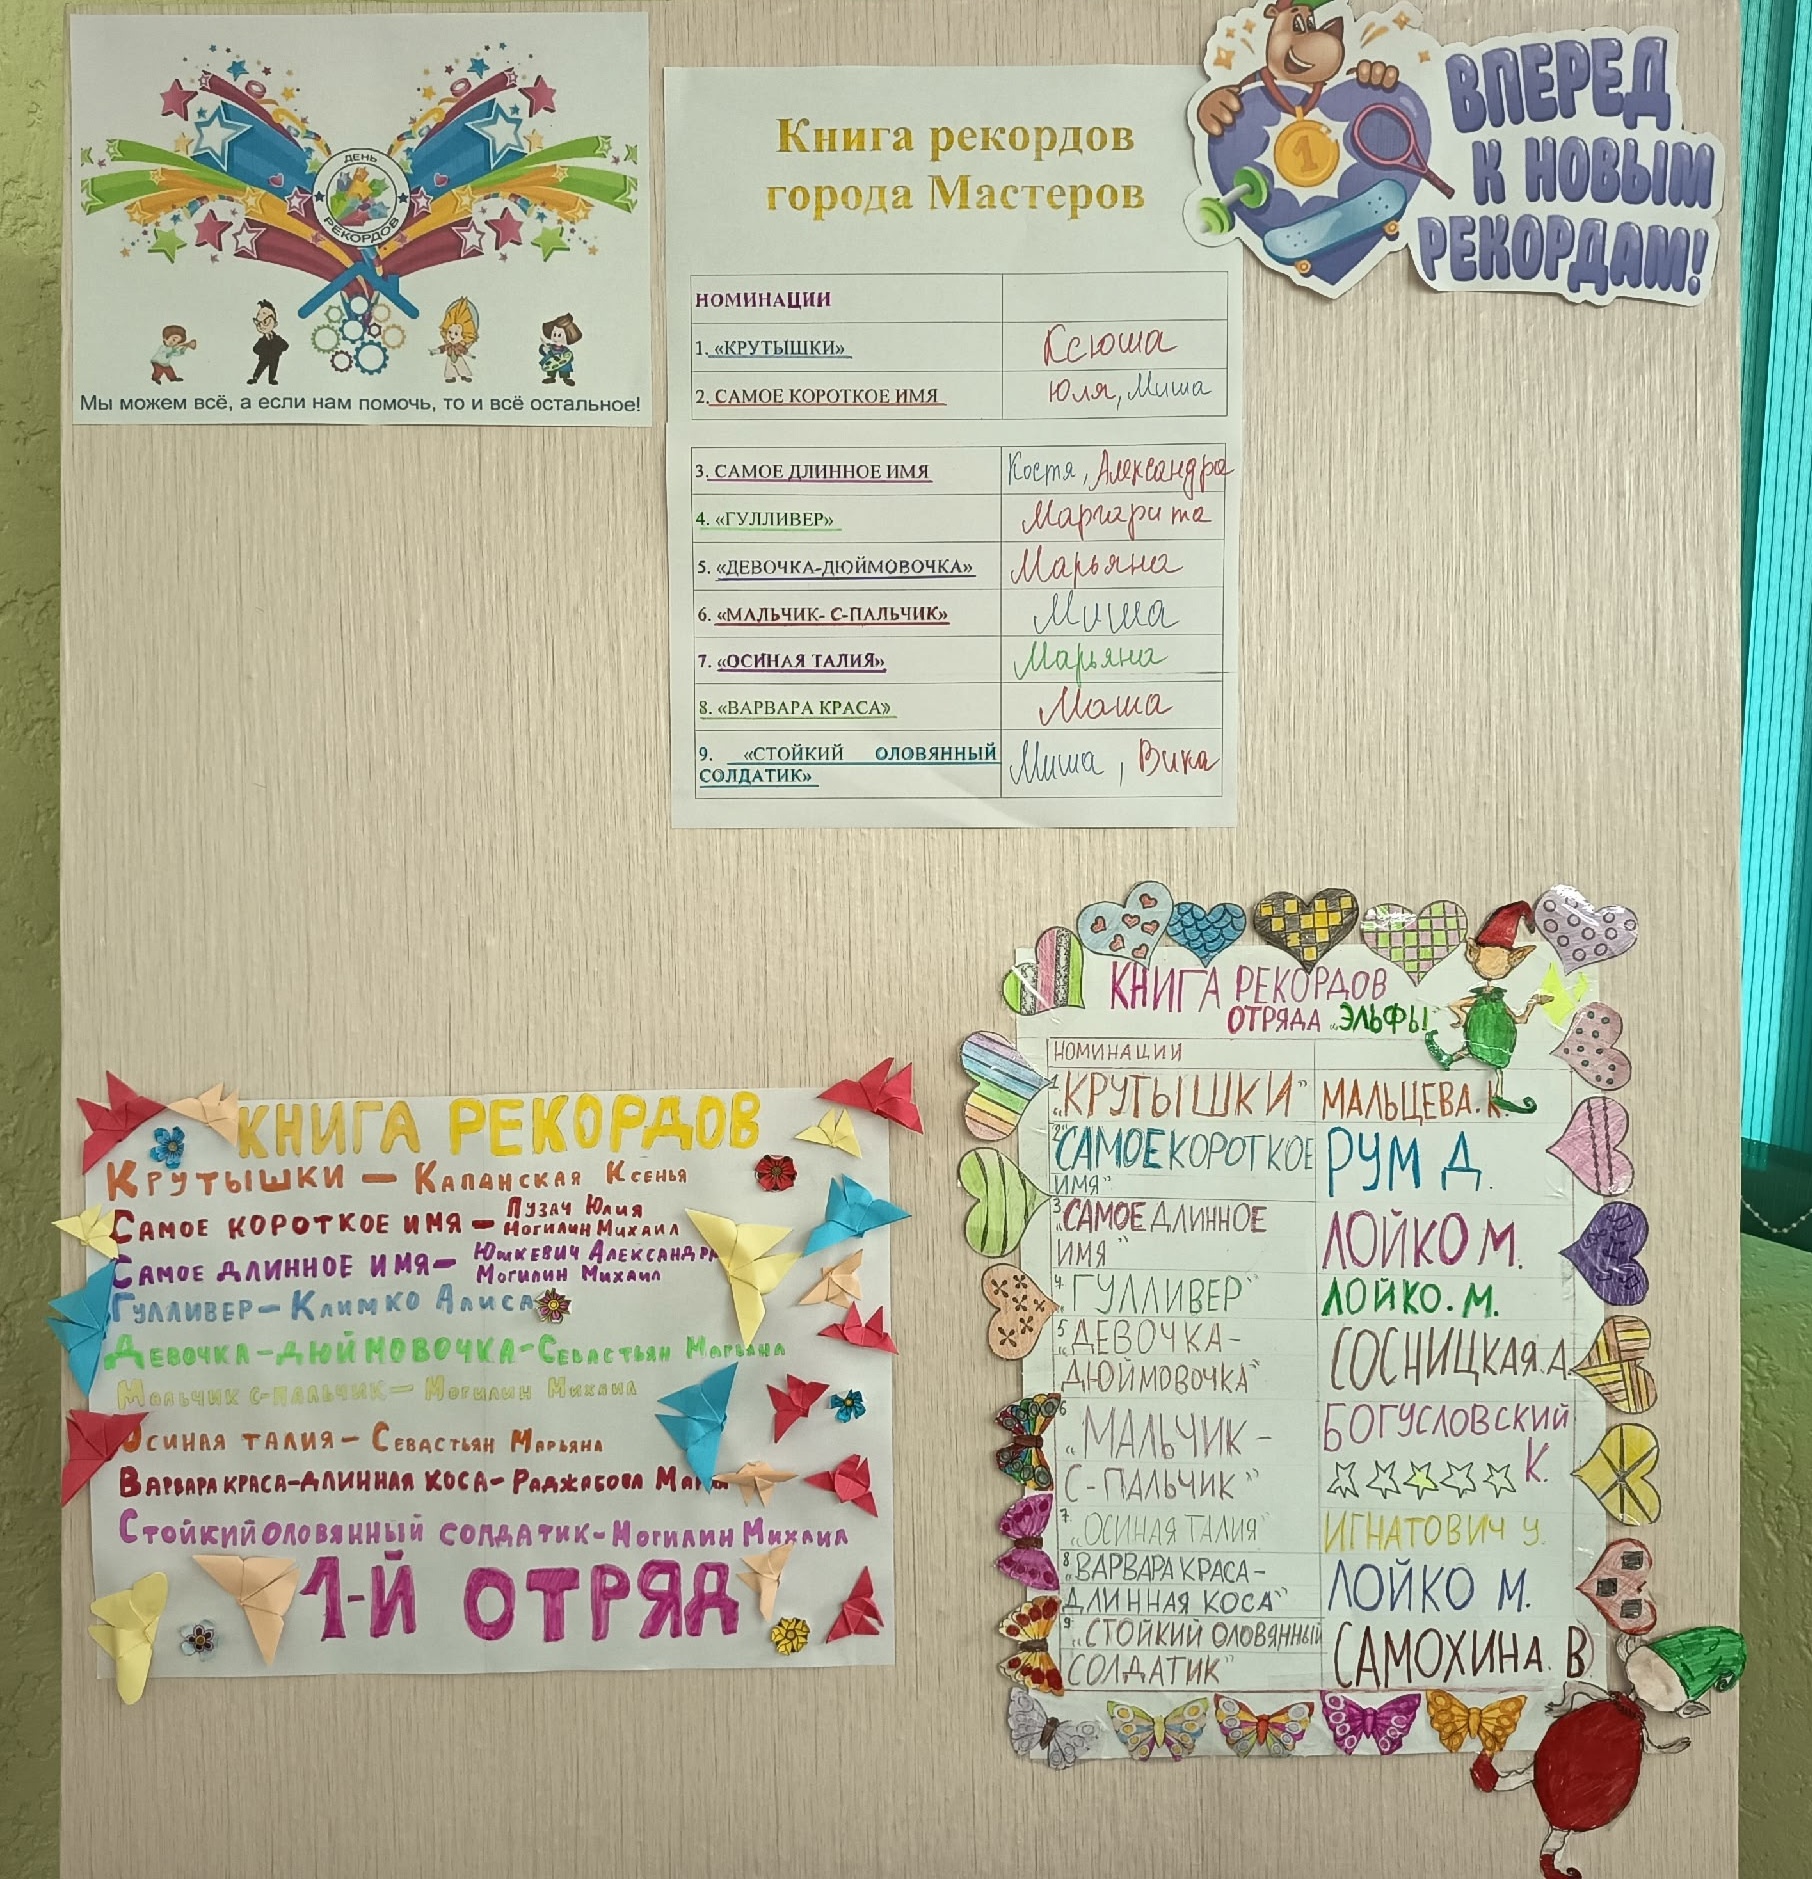 ДЕНЬ
РЕКОРДОВ
Мы можем всё, а если нам помочь, то и всё остальное!
Книга рекордов
города Мастеров
НОМИНАЦИИ
1. «КРУТЫШКИ» Ксюша
2. САМОЕ КОРОТКОЕ ИМЯ Юля, Миша
3. САМОЕ ДЛИННОЕ ИМЯ Костя, Александра
4. «ГУЛЛИВЕР» Маргарита
5. «ДЕВОЧКА-ДЮЙМОВОЧКА» Марьяна
6. «МАЛЬЧИК- С-ПАЛЬЧИК» Миша
7. «ОСИНАЯ ТАЛИЯ» Марьяна
8. «ВАРВАРА КРАСА» Маша
9. «СТОЙКИЙ ОЛОВЯННЫЙ
СОЛДАТИК» Миша, Вика
1
ВПЕРЕД
К НОВЫМ
РЕКОРДАМ!
КНИГА РЕКОРДОВ
КРУТЫШКИ – КАПАНСКАЯ КСЕНЬЯ
САМОЕ КОРОТКОЕ ИМЯ – ПУЗАЧ ЮЛИЯ
МОГИЛИН МИХАИЛ
САМОЕ ДЛИННОЕ ИМЯ – ЮШКЕВИЧ АЛЕКСАНДРА
МОГИЛИН МИХАИЛ
ГУЛЛИВЕР – КЛИМКО АЛИСА
ДЕВОЧКА-ДЮЙМОВОЧКА-СЕВАСТЬЯН МАРЬЯНА
МАЛЬЧИК С-ПАЛЬЧИК – МОГИЛИН МИХАИЛ
ОСИНАЯ ТАЛИЯ – СЕВАСТЬЯН МАРЬЯНА
ВАРВАРА КРАСА-ДЛИННАЯ КОСА-РАДЖАБОВА
СТОЙКИЙ ОЛОВЯННЫЙ СОЛДАТИК-МОГИЛИН МИХАИЛ
1-Й ОТРЯД
КНИГА РЕКОРДОВ
ОТРЯДА „ЭЛЬФЫ"
НОМИНАЦИИ
1. „КРУТЫШКИ" МАЛЬЦЕВА. К.
2. „САМОЕ КОРОТКОЕ
ИМЯ" РУМ Д.
3. „САМОЕ ДЛИННОЕ
ИМЯ" ЛОЙКО М.
4. „ГУЛЛИВЕР" ЛОЙКО. М.
5. „ДЕВОЧКА-
ДЮЙМОВОЧКА" СОСНИЦКАЯ. А.
6. „МАЛЬЧИК-
С-ПАЛЬЧИК" БОГУСЛОВСКИЙ
К.
7. „ОСИНАЯ ТАЛИЯ" ИГНАТОВИЧ У.
8. „ВАРВАРА КРАСА-
ДЛИННАЯ КОСА" ЛОЙКО М.
9. „СТОЙКИЙ ОЛОВЯННЫЙ
СОЛДАТИК" САМОХИНА. В.